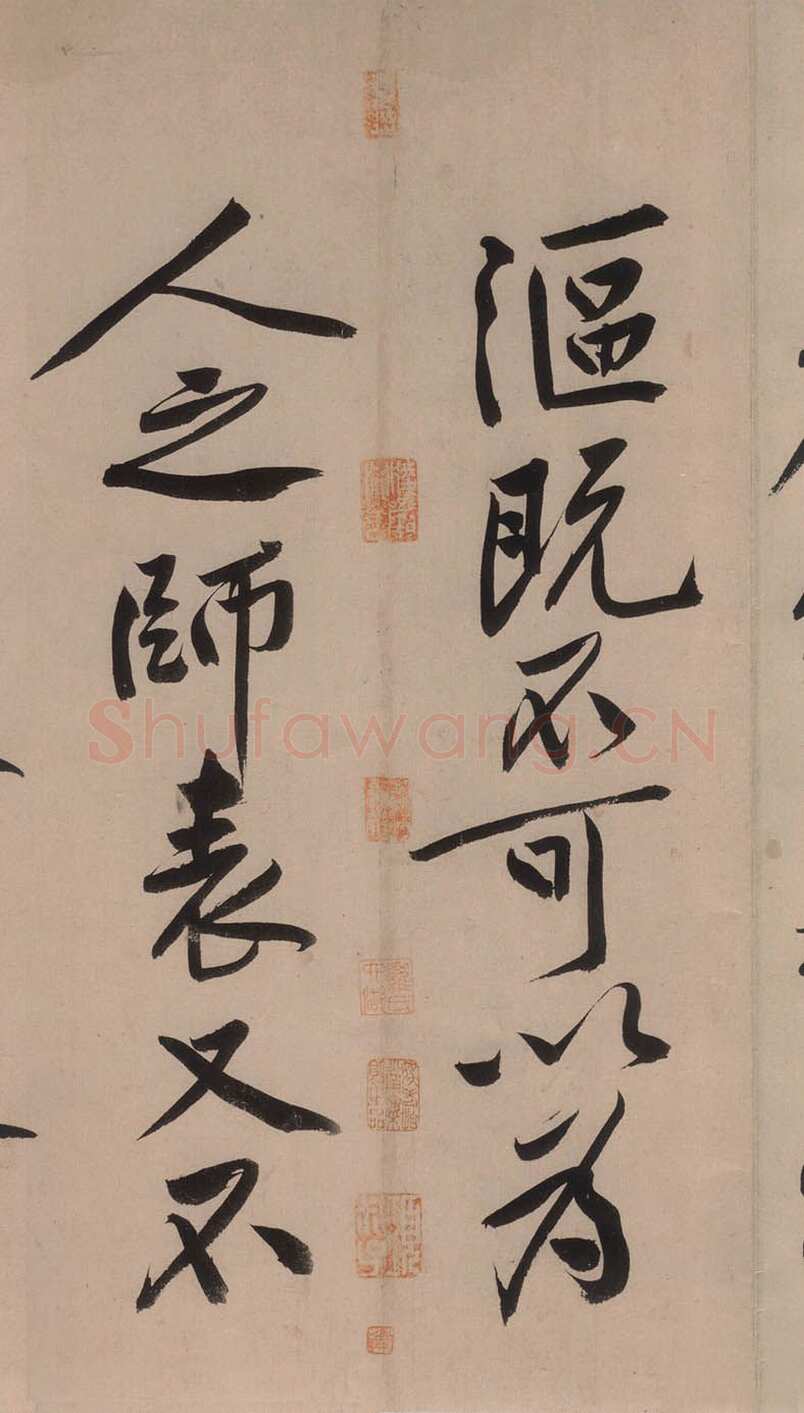 漚既不可以為
人之師表又不
Shufawang.CN